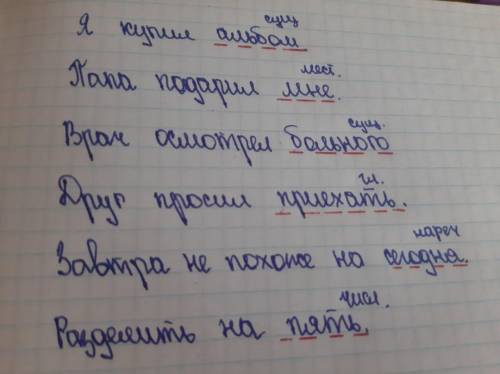 сущ
Я купил альбом.
мест.
Папа подарил мне.
сущ.
Врач осмотрел больного
гл.
Друг просил приехать.
нареч
Завтра не похоже на сегодня.
числ.
Разделить на пять.